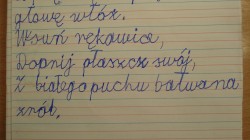 głowę włóż.
Wsuń rękawice,
Dopnij płaszcz swój,
Z białego puchu bałwana
zrób.